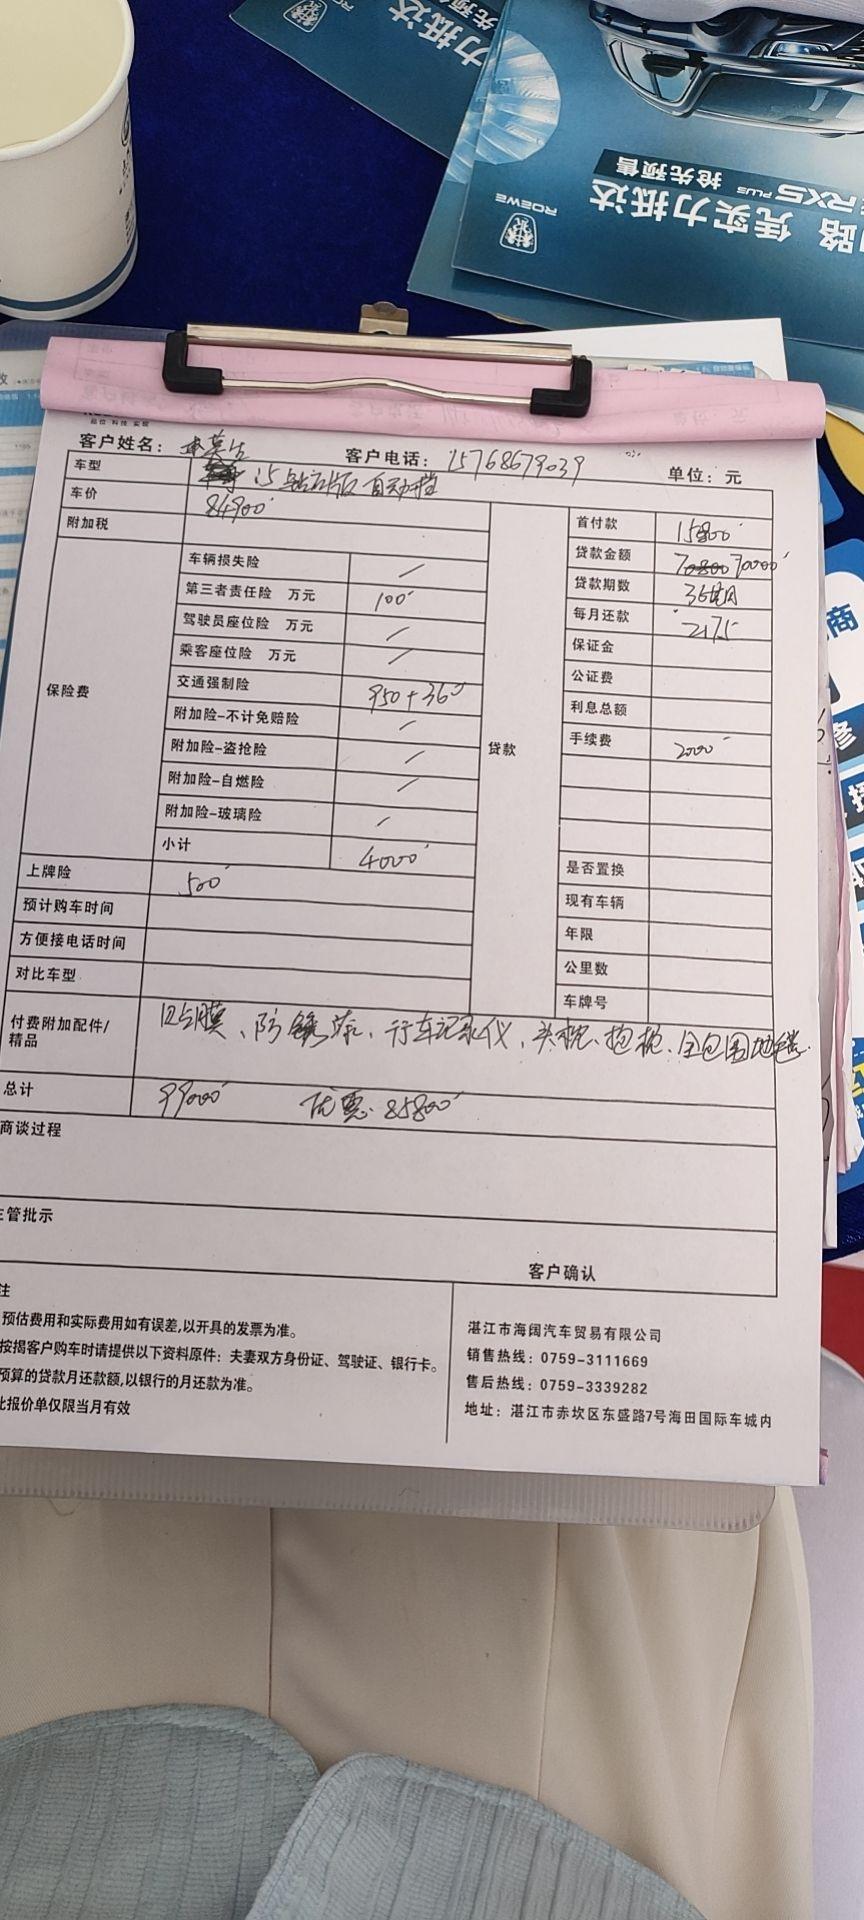 力抵达
先预售
抢先预售
RX5 PLUS
凭实力抵达
ROEWE
荣威
品位 科技 实现
客户姓名：
客户电话：15768679039
单位：元
车型 i5 钻石版 自动挡
车价 84900
附加税
保险费
车辆损失险 /
第三者责任险 万元 100
驾驶员座位险 万元 /
乘客座位险 万元 /
交通强制险 950+360
附加险-不计免赔险 /
附加险-盗抢险 /
附加险-自燃险 /
附加险-玻璃险 /
小计 4000
贷款
首付款 15800
贷款金额 70800 70000
贷款期数 36期
每月还款 2175
保证金
公证费
利息总额
手续费 2000
是否置换
现有车辆
年限
公里数
车牌号
上牌险 500
预计购车时间
方便接电话时间
对比车型
付费附加配件/
精品
膜、防锈、行车记录仪、头枕、抱枕、全包围地毯.
总计 99000 优惠: 85800
商谈过程
主管批示
客户确认
注
预估费用和实际费用如有误差,以开具的发票为准。
按揭客户购车时请提供以下资料原件：夫妻双方身份证、驾驶证、银行卡。
预算的贷款月还款额,以银行的月还款为准。
此报价单仅限当月有效
湛江市海阔汽车贸易有限公司
销售热线：0759-3111669
售后热线：0759-3339282
地址：湛江市赤坎区东盛路7号海田国际车城内
商
修